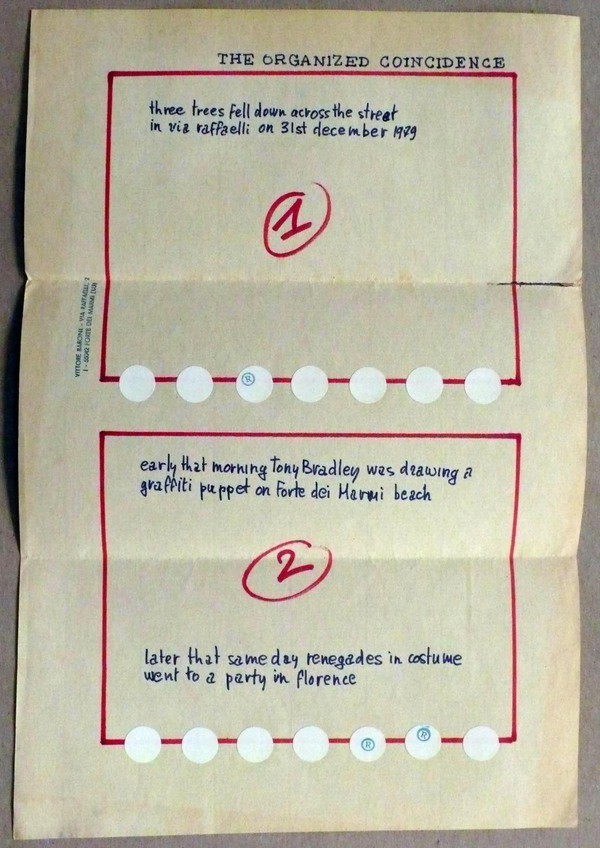 THE ORGANIZED COINCIDENCE
three trees fell down across the street
in via raffaelli on 31st december 1979
1
VITTORE BARONI - VIA RAFFAELLI 2
I - 55042 FORTE DEI MARMI (LU)
®
early that morning Tony Bradley was drawing a
graffiti puppet on Forte dei Marmi beach
2
later that same day renegades in costume
went to a party in florence
® ®